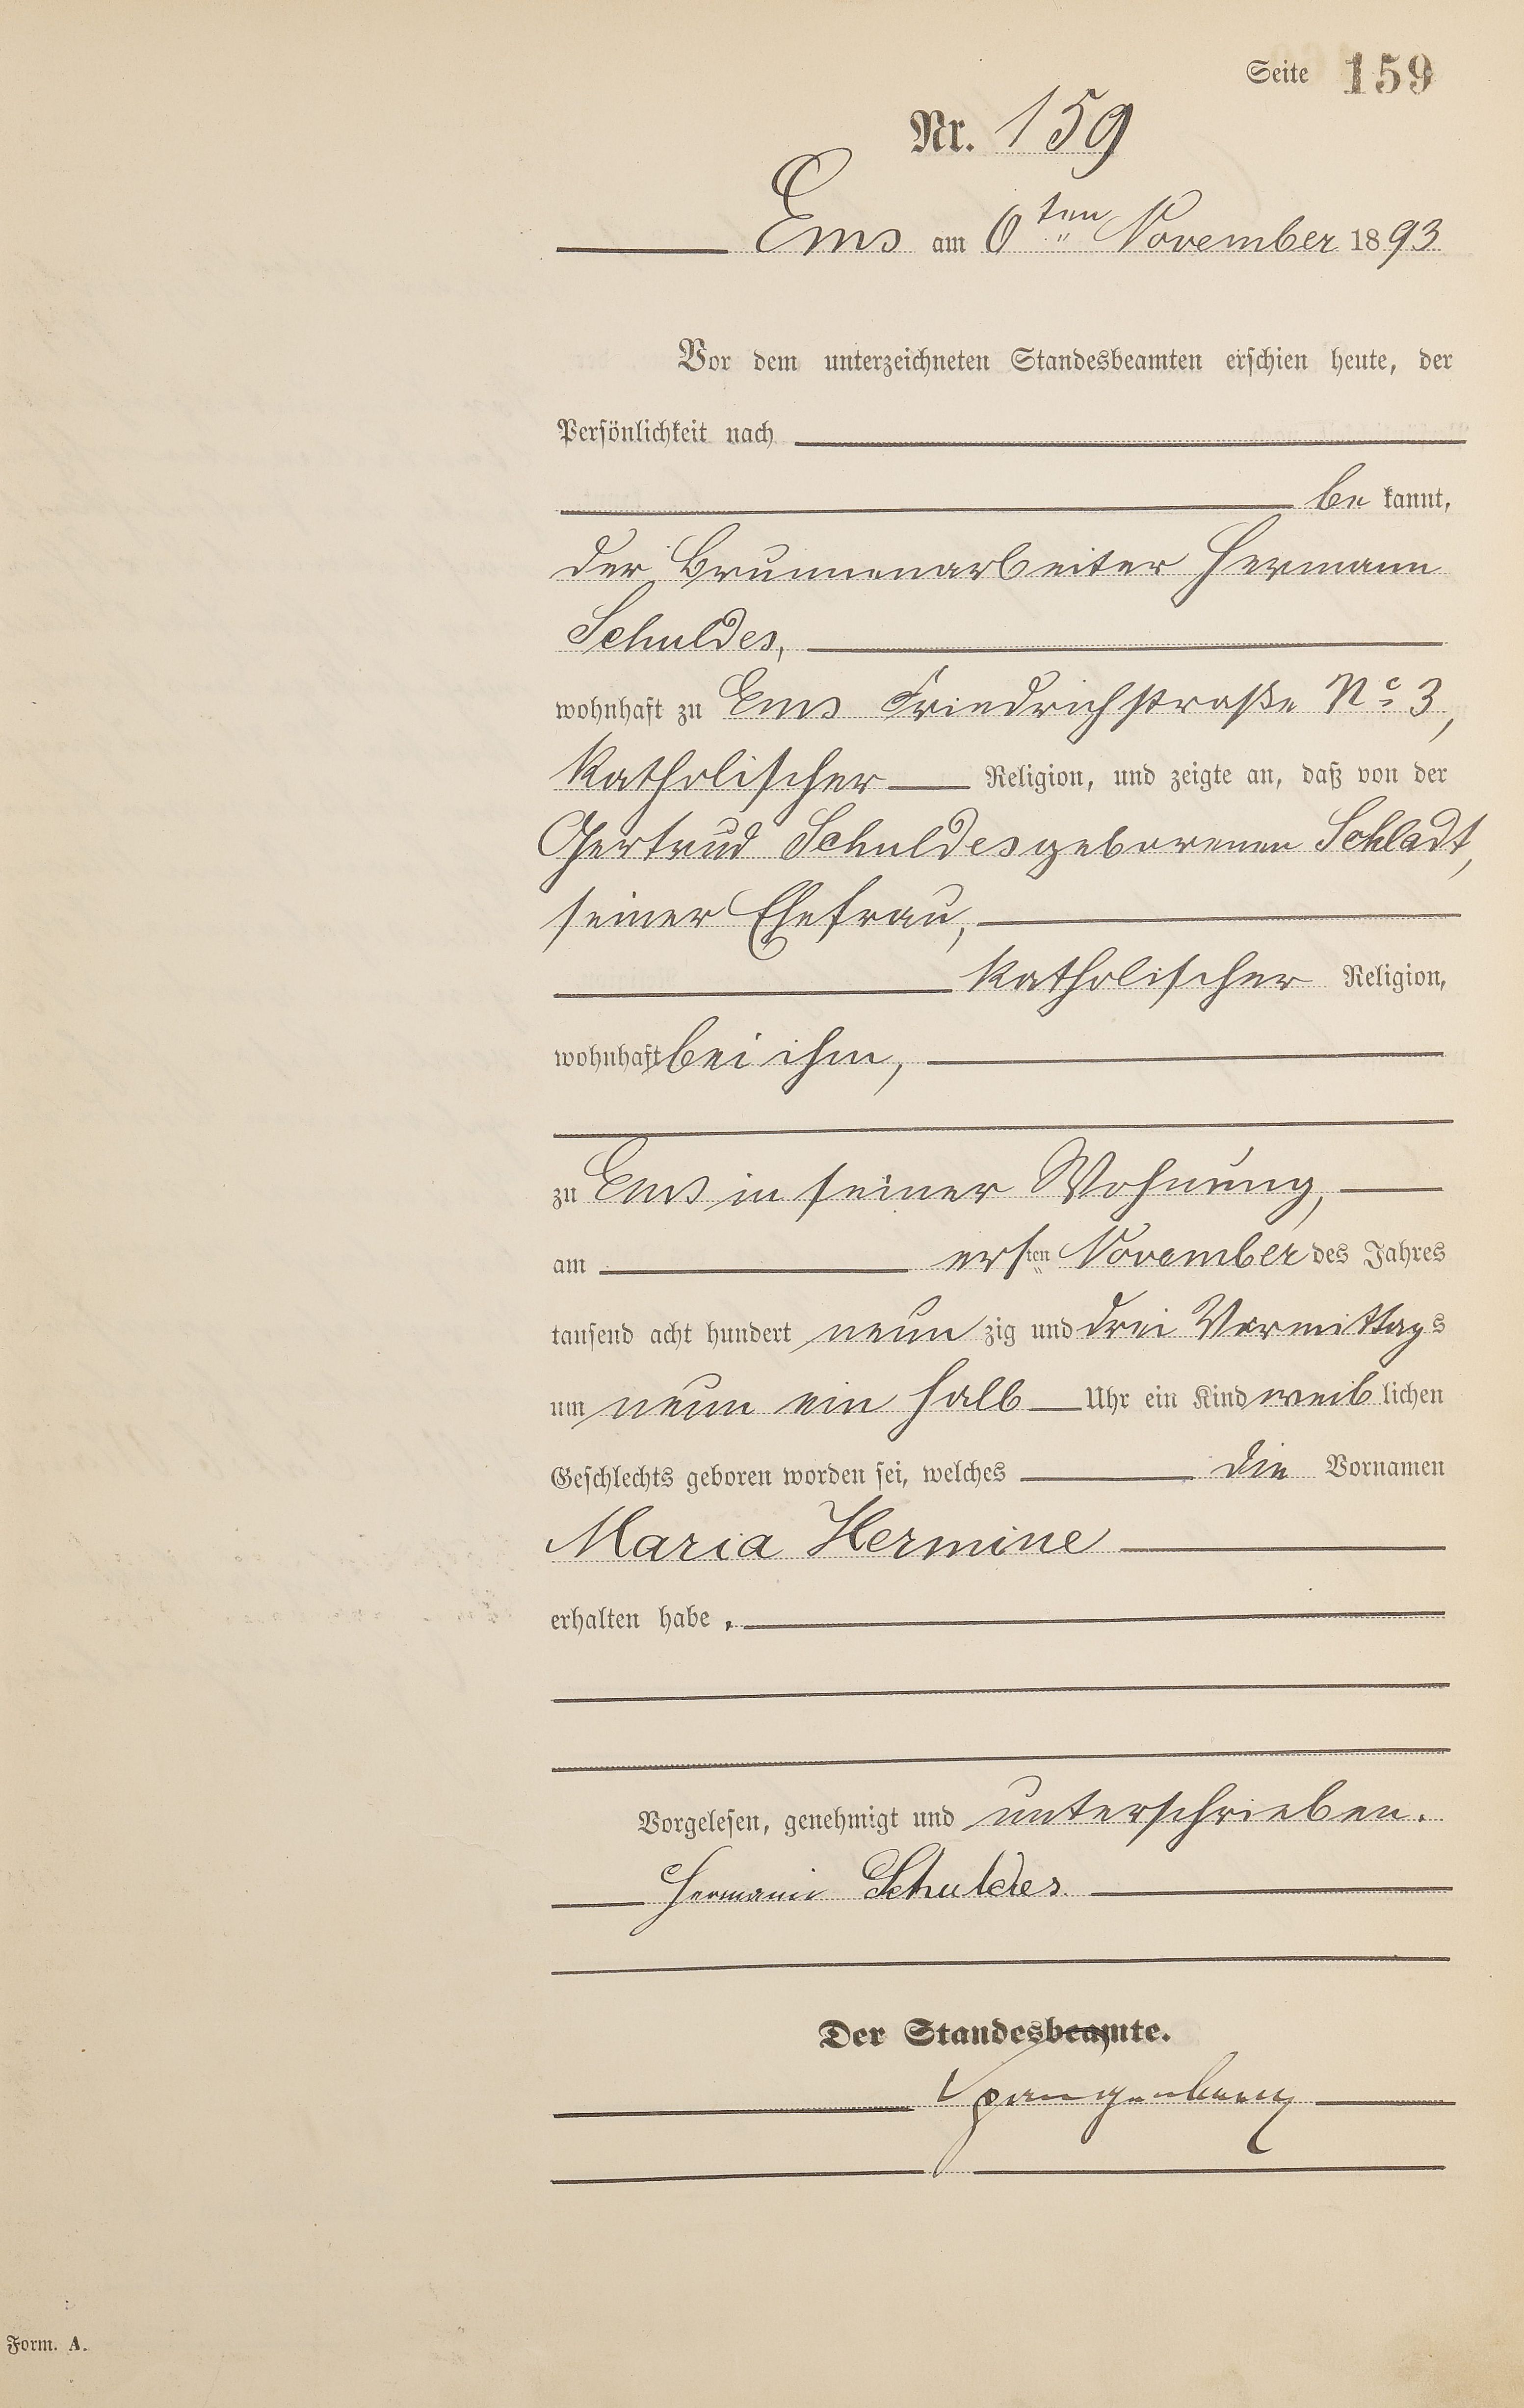 Seite 159
Nr. 159
Ems am 6ten November 1893
Vor dem unterzeichneten Standesbeamten erschien heute, der
Persönlichkeit nach
be kannt,
der Brunnenarbeiter Hermann
Schuldes,
wohnhaft zu Ems Friedrichstraße No 3,
katholischer Religion, und zeigte an, daß von der
Gertrud Schuldes geborenen Schladt,
seiner Ehefrau,
katholischer Religion,
wohnhaft bei ihm,
zu Ems in seiner Wohnung,
am ersten November des Jahres
tausend acht hundert neun zig und drei Vormittags
um neun ein halb Uhr ein Kind weib lichen
Geschlechts geboren worden sei, welches die Vornamen
Maria Hermine
erhalten habe.
Vorgelesen, genehmigt und unterschrieben.
Hermann Schuldes.
Der Standesbeamte.
Spangenberg
Form. A.